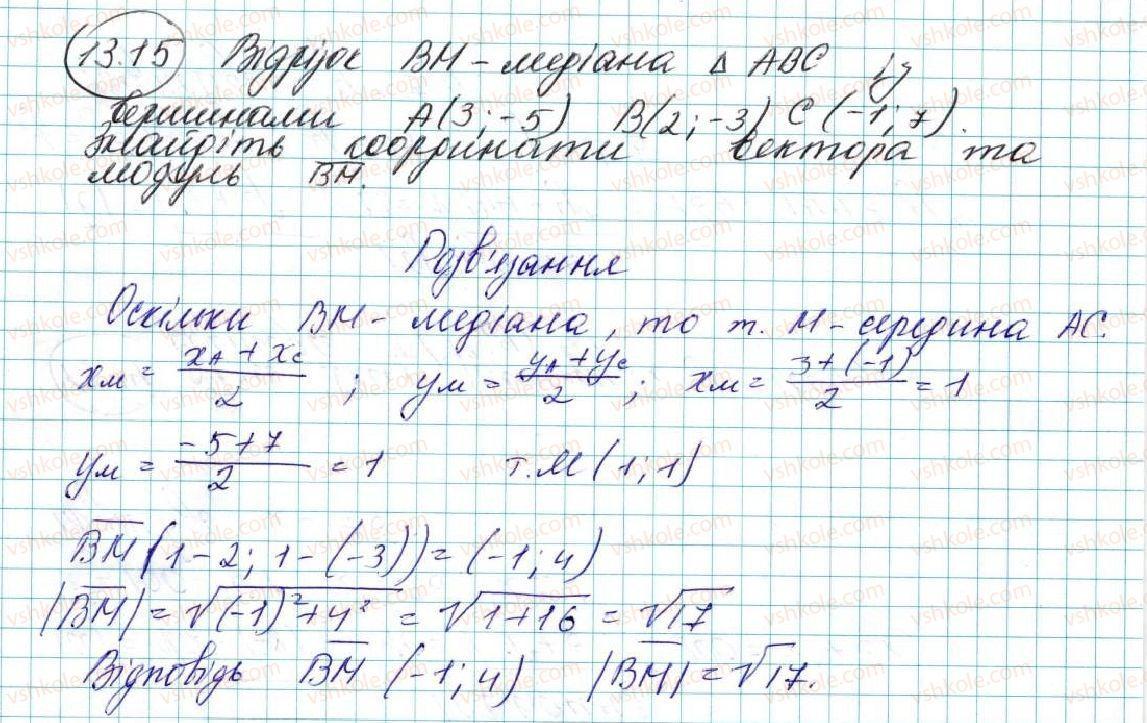 13.15 Відрізок BM - медіана Δ ABC із
вершинами A(3; -5) B(2; -3) C(-1; 7).
Знайдіть координати вектора та
модуль BM.
Розв'язання
Оскільки BM - медіана, то т. M - середина AC.
xм = (xA + xC)/2 ; yм = (yA + yC)/2 ; xм = (3 + (-1))/2 = 1
yм = (-5 + 7)/2 = 1 т. M (1; 1)
BM (1 - 2; 1 - (-3)) = (-1; 4)
|BM| = √((-1)² + 4²) = √(1 + 16) = √17
Відповідь BM (-1; 4) |BM| = √17.